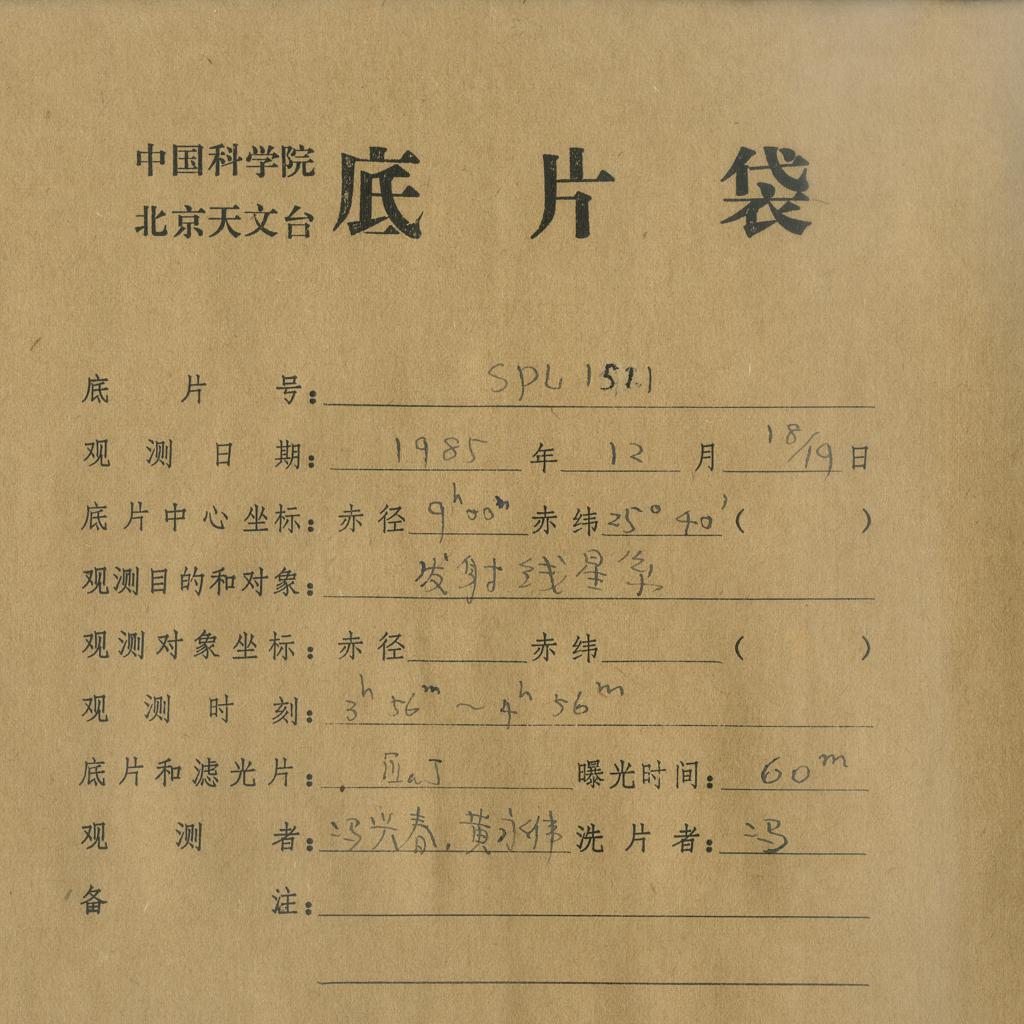 中国科学院
北京天文台
底片袋
底片号：SPL 1511
观测日期：1985年12月18/19日
底片中心坐标：赤径9ʰ00ᵐ赤纬25°40′（ ）
观测目的和对象：发射线星系
观测对象坐标：赤径 赤纬 （ ）
观测时刻：3ʰ56ᵐ～4ʰ56ᵐ
底片和滤光片：ⅢaJ 曝光时间：60ᵐ
观测者：冯兴春.黄永伟 洗片者：冯
备注：